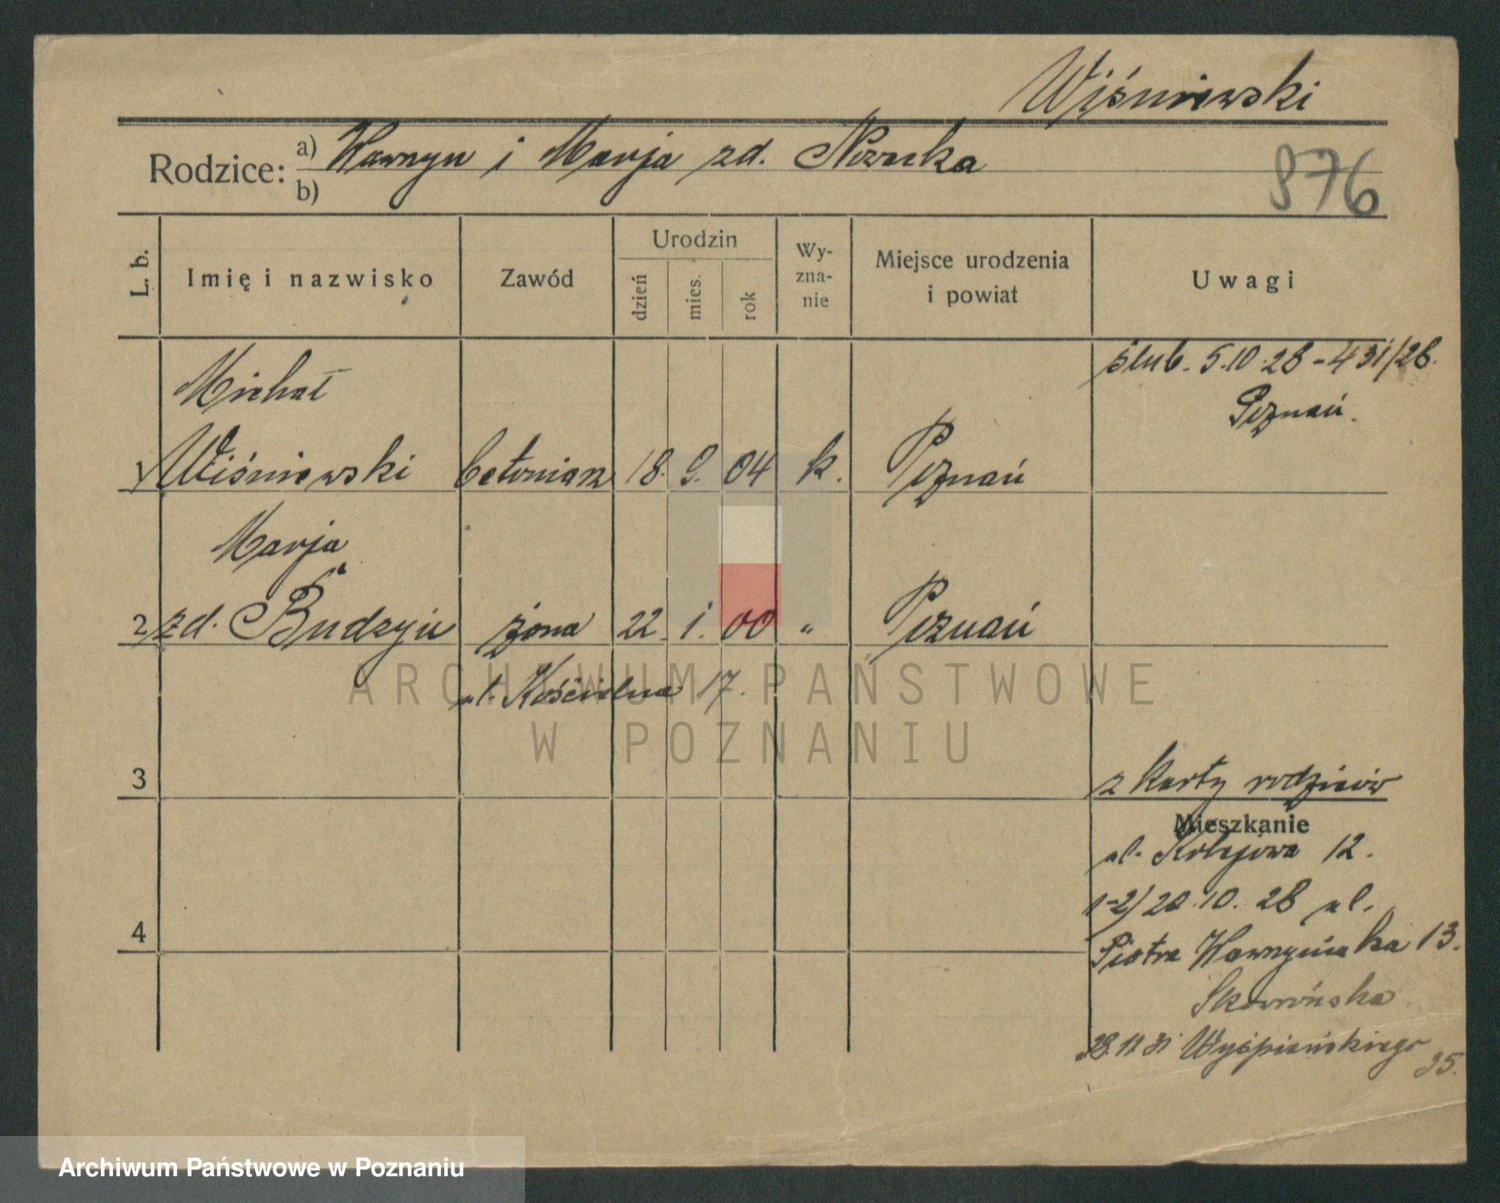 Wiśniewski
Rodzice: a) Wawrzyn i Marja zd. Nowicka
b)
976
L. b.
Imię i nazwisko
Zawód
Urodzin
dzień
mies.
rok
Wy-
zna-
nie
Miejsce urodzenia
i powiat
Uwagi
ślub. 5.10.28 - 431/28.
Poznań.
Michał
1 Wiśniewski betoniarz 18. 9. 04 k. Poznań
Marja
2 zd. Budzyń żona 22. 1. 00 " Poznań
ul. Kościelna 17.
ARCHIWUM PAŃSTWOWE
W POZNANIU
3
z karty rodziców
Mieszkanie
ul. Kolejowa 12.
1-2) 20.10.28 ul.
4
Piotra Wawrzyniaka 13.
Skowrońska
28.11.31 Wyśpiańskiego
35.
Archiwum Państwowe w Poznaniu